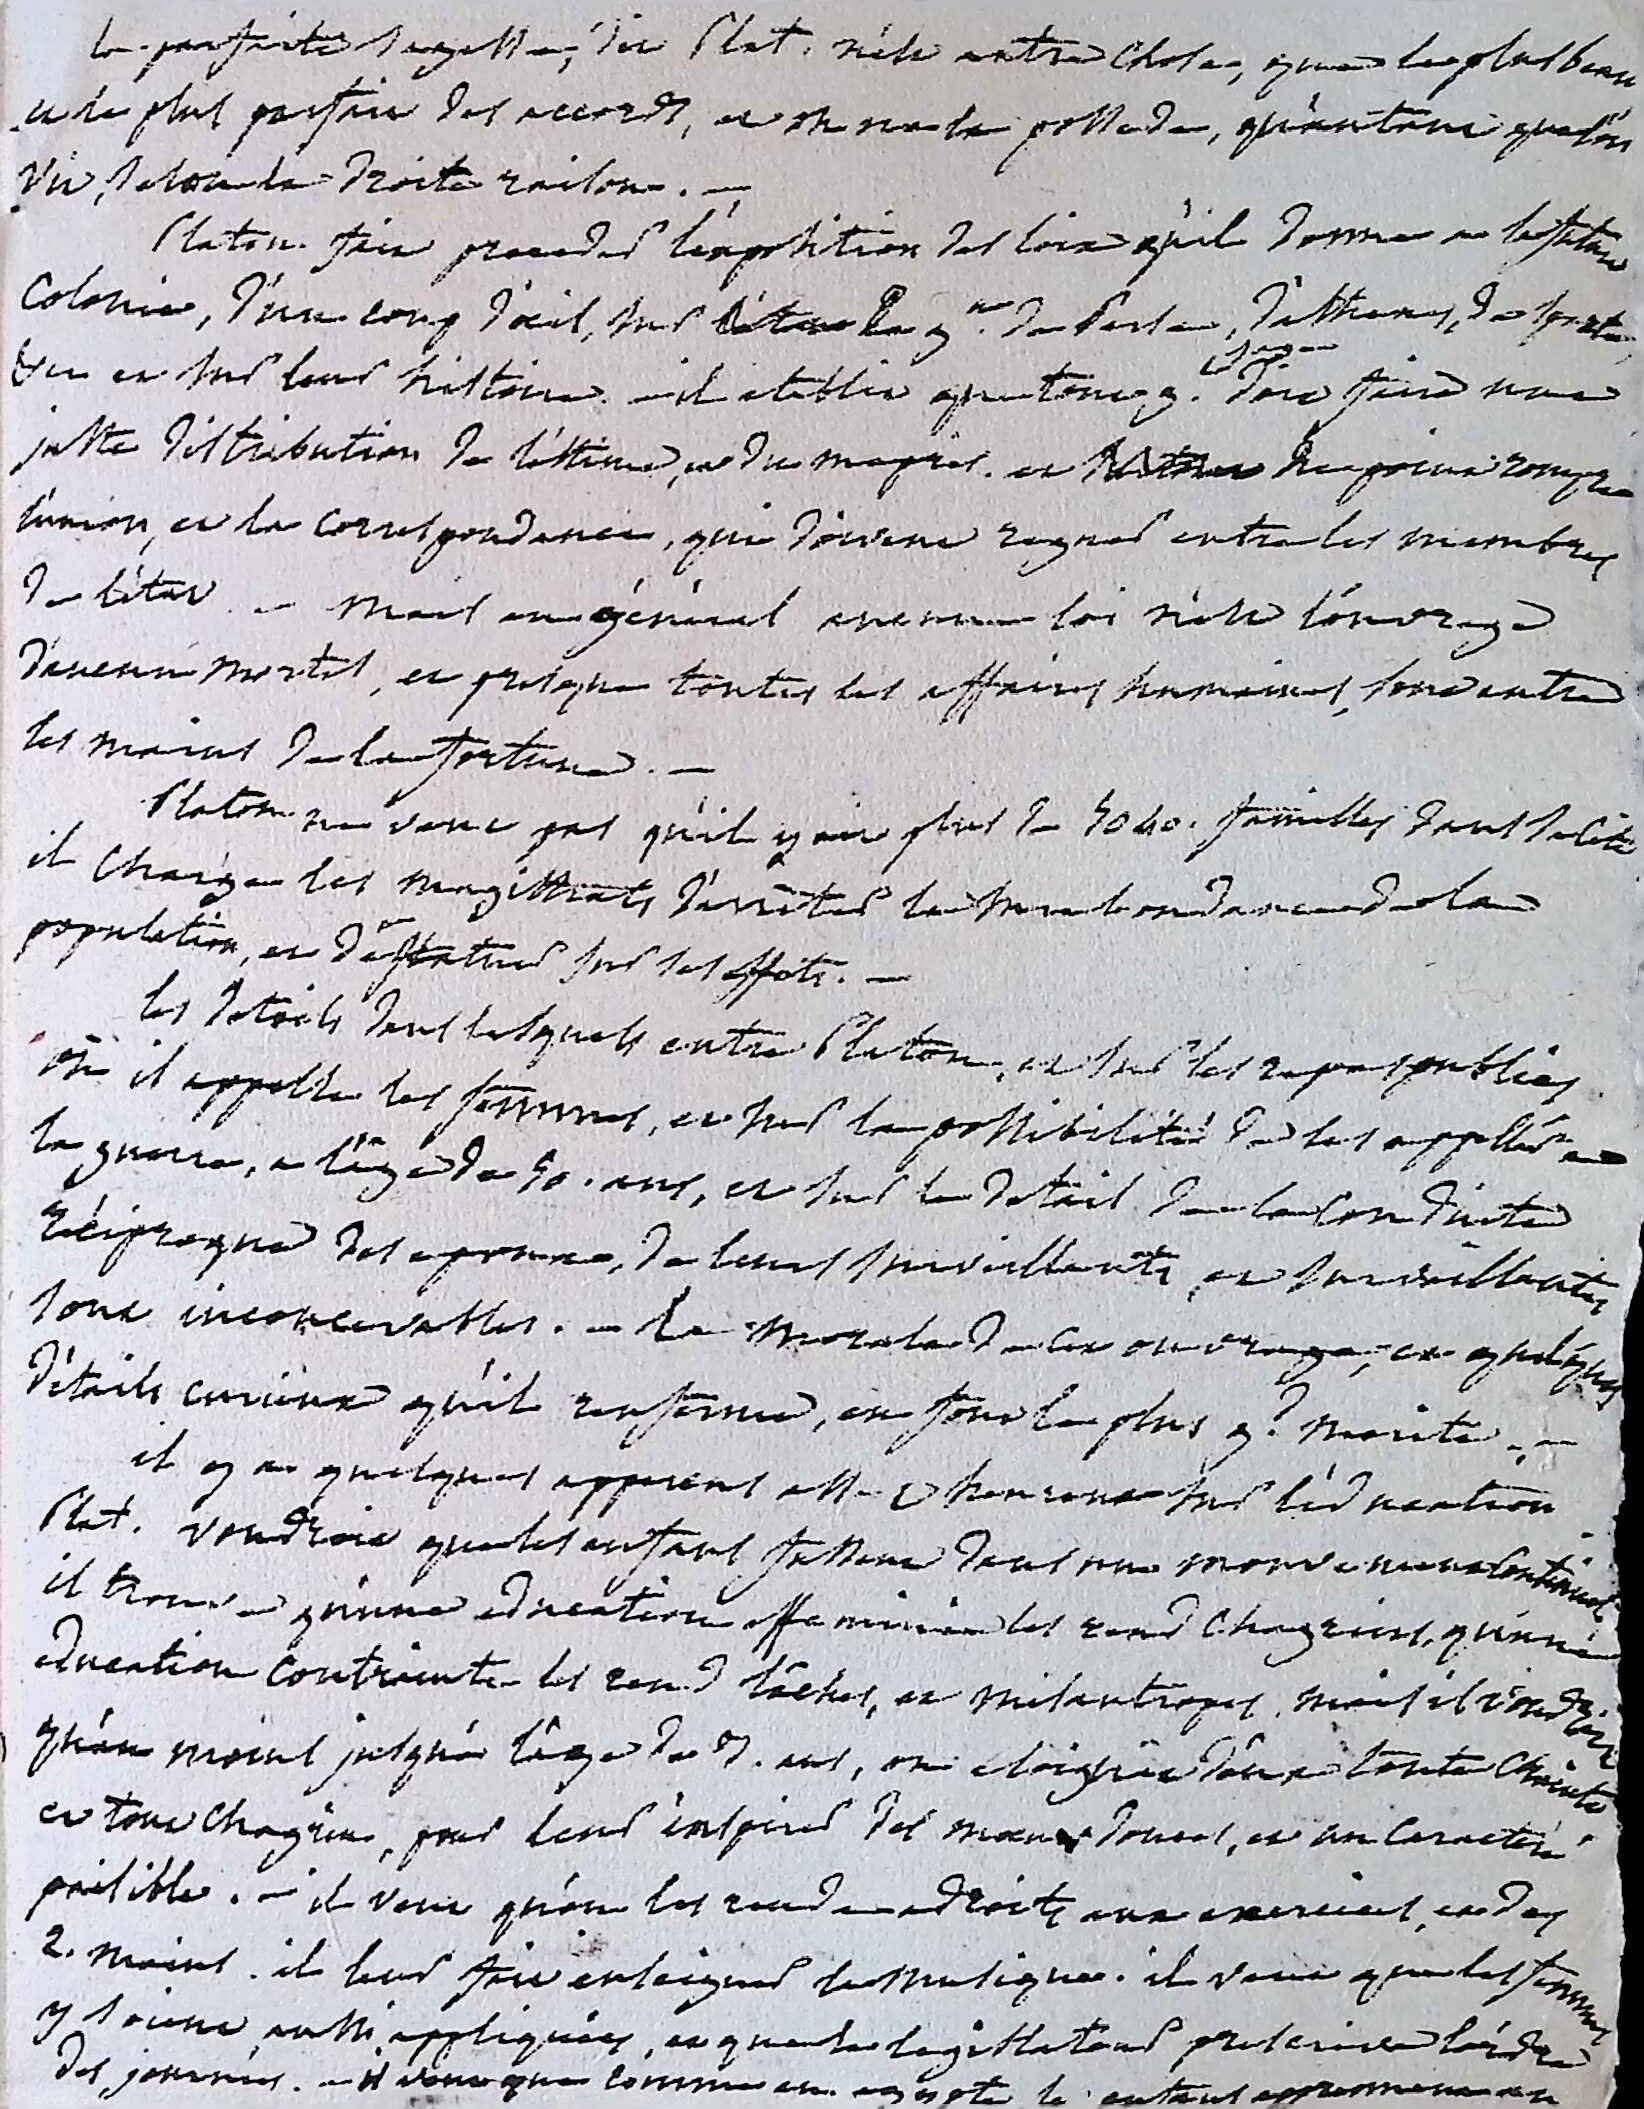 la parfaite sagesse, dit Plat. n'est autre chose, que le plus beau
et le plus parfait des accords, et on ne la possede, qu'autant que l'on
vit, selon la droite raison. —
Platon fait preceder l'exposition des loix qu'il donne a la future
Colonie, d'un coup d'œil, sur le g.nt de Perse, d'athenes, de sparte,
&c. et sur leur histoire. — il etablit que tout g. sage doit faire une
juste distribution de l'estime, et du mepris. et ne point rompre
l'union, et la correspondance, qui doivent regner entre les membres
de l'état. — mais en général aucune loi n'est l'ouvrage
d'aucun mortel, et presque toutes les affaires humaines, sont entre
les mains de la fortune. —
Platon ne veut pas qu'il y ait plus de 5040. familles dans sa cité
il charge les magistrats d'arrêter la surabondance de la
population, et de statuer sur ses effets. —
les détails dans lesquels entre Platon, et sur les repas publics
où il appelle les femmes, et sur la possibilité de les appeller a
la guerre, a l'âge de 50. ans, et sur le détail de la conduite
réciproque des epoux, de leurs surveillants, et surveillantes
sont inconcevables. — La morale de cet ouvrage, et quelques
détails curieux qu'il renferme, en font le plus g.d merite. —
il y a quelques apperçus assez heureux sur l'éducation
Plat. voudroit que les enfans fussent dans un mouvement continuel
il trouve qu'une education effeminée les rend chagrins, qu'une
education contrainte les rend lâches, et misantropes, mais il voudroit
qu'au moins jusqu'a l'âge de 3. ans, on eloignât d'eux toute crainte
et tout chagrin, pour leur inspirer des mœurs douces, et un caractère
paisible. — il veut qu'on les rende adroits aux exercices, et des
2. mains. il leur fait enseigner la musique. il veut que les femmes
y soient aussi appliquées, et que le legislateur prescrive l'ordre
des journées. — il veut que comme en egypte les enfans apprennent en